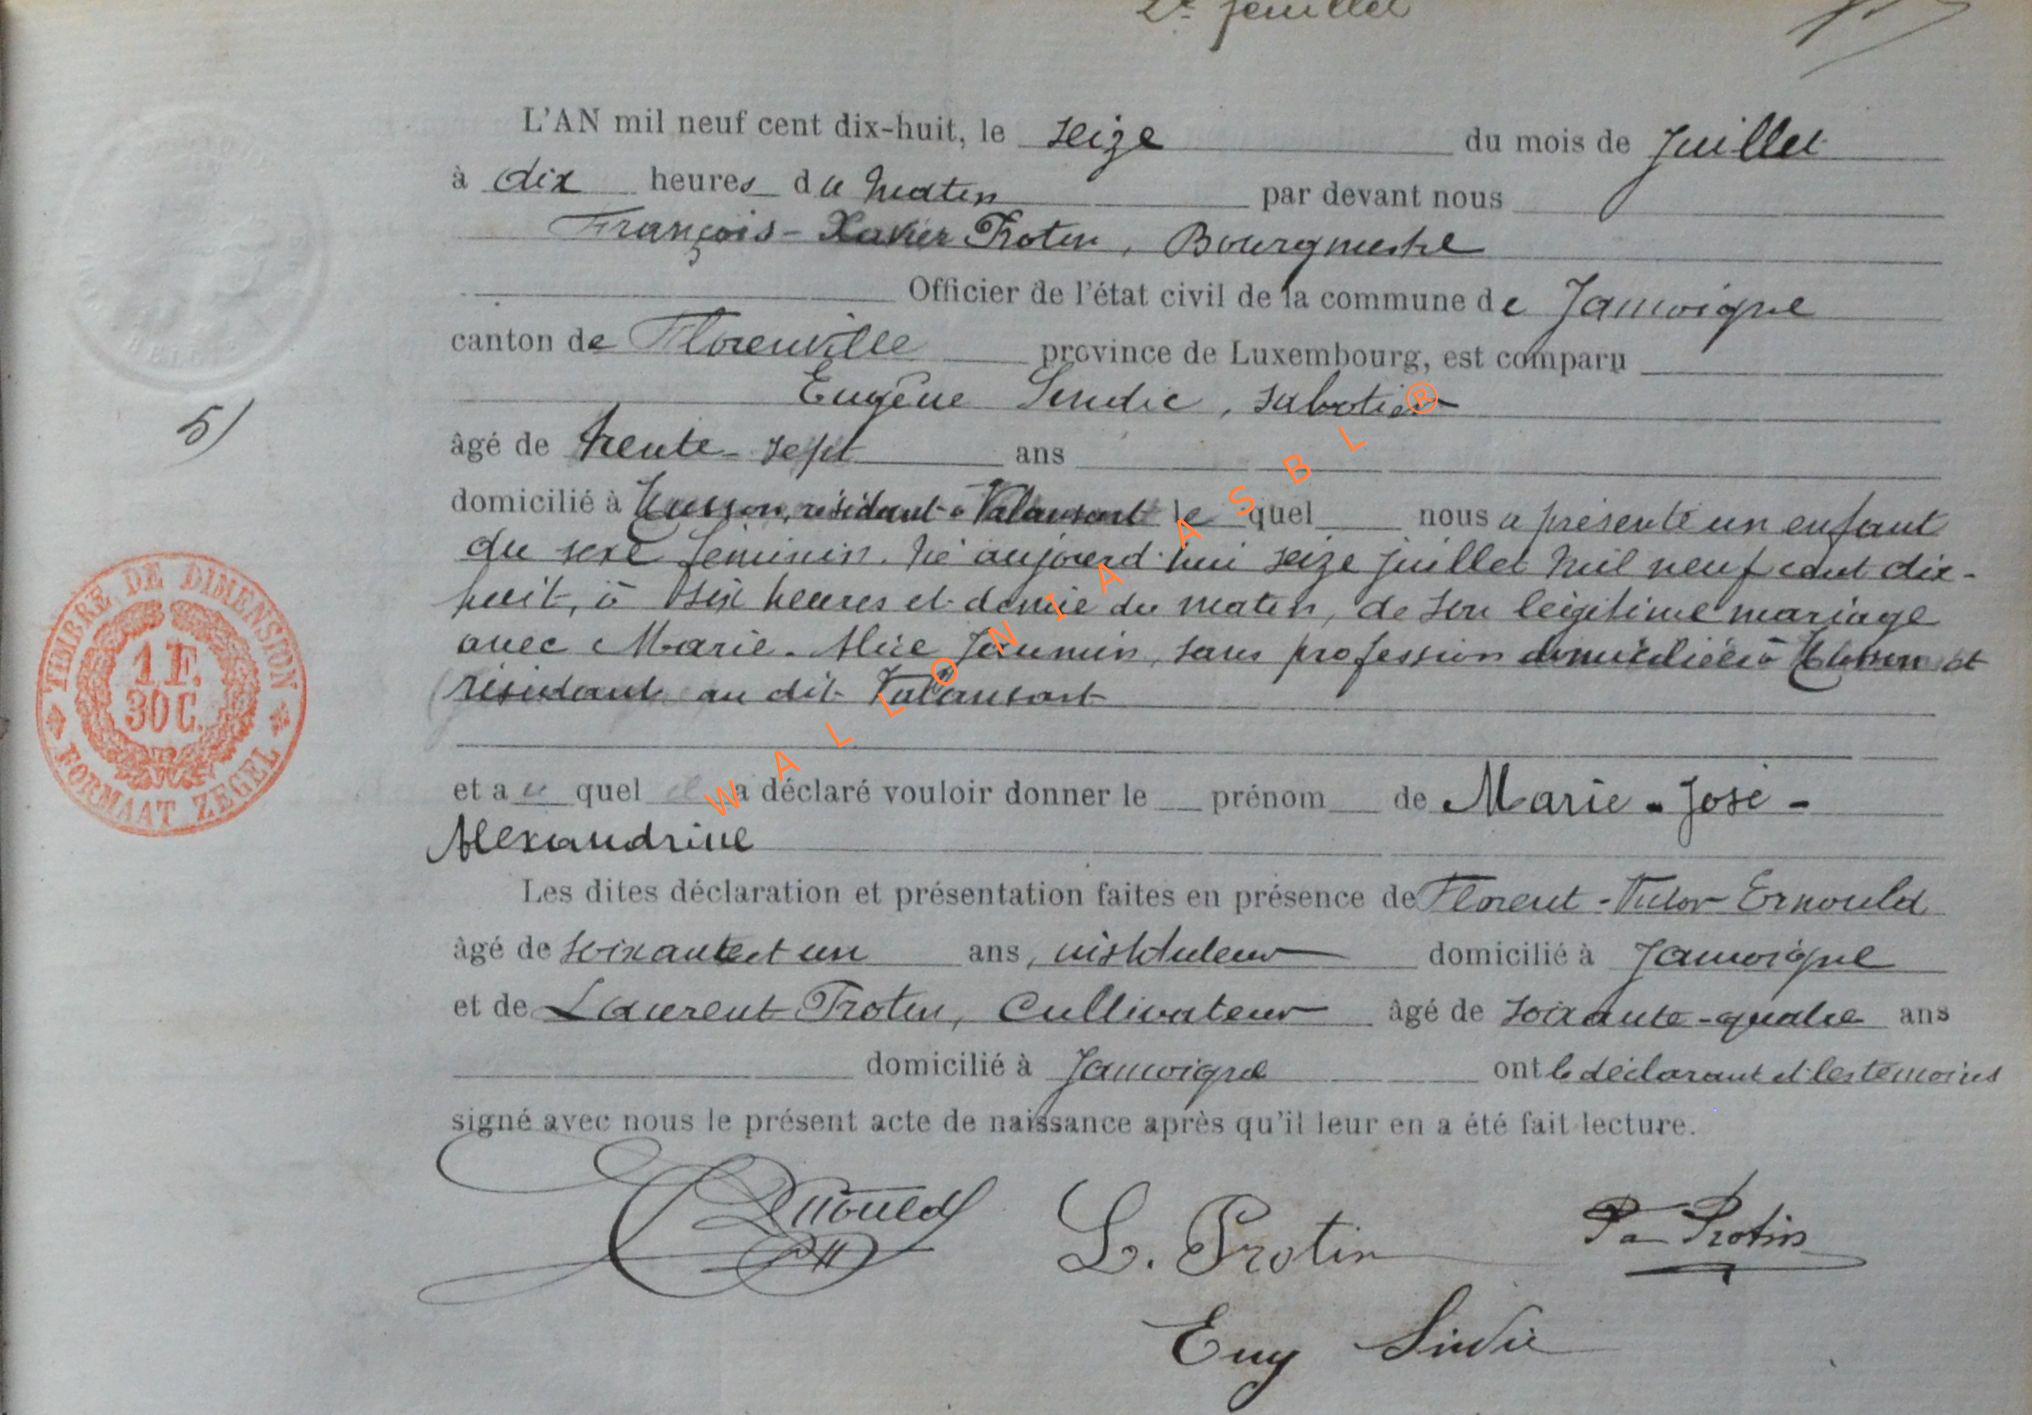 2e feuillet
L'AN mil neuf cent dix-huit, le seize du mois de Juillet
à dix heures du matin par devant nous
François-Xavier Protin, Bourgmestre
Officier de l'état civil de la commune de Jamoigne
canton de Florenville province de Luxembourg, est comparu
Eugène Sindic, sabotier
5)
âgé de trente-sept ans
domicilié à Musson, résidant à Valansart lequel nous a présenté un enfant
du sexe féminin. Né aujourd'hui seize juillet mil neuf cent dix-
huit, à six heures et demie du matin, de son légitime mariage
avec Marie-Alice Jaumin, sans profession domiciliée à Musson et
résidant au dit Valansart
et auquel il a déclaré vouloir donner le prénom de Marie-José-
Alexandrine
Les dites déclaration et présentation faites en présence de Florent-Victor Ernould
âgé de soixante et un ans, instituteur domicilié à Jamoigne
et de Laurent Protin, Cultivateur âgé de soixante-quatre ans
domicilié à Jamoigne ont le déclarant et les témoins
signé avec nous le présent acte de naissance après qu'il leur en a été fait lecture.
Ernould L. Protin Protin
Eug Sindic
TIMBRE DE DIMENSION
1 F.
30 C.
FORMAAT ZEGEL
WALLONIA ASBL ®